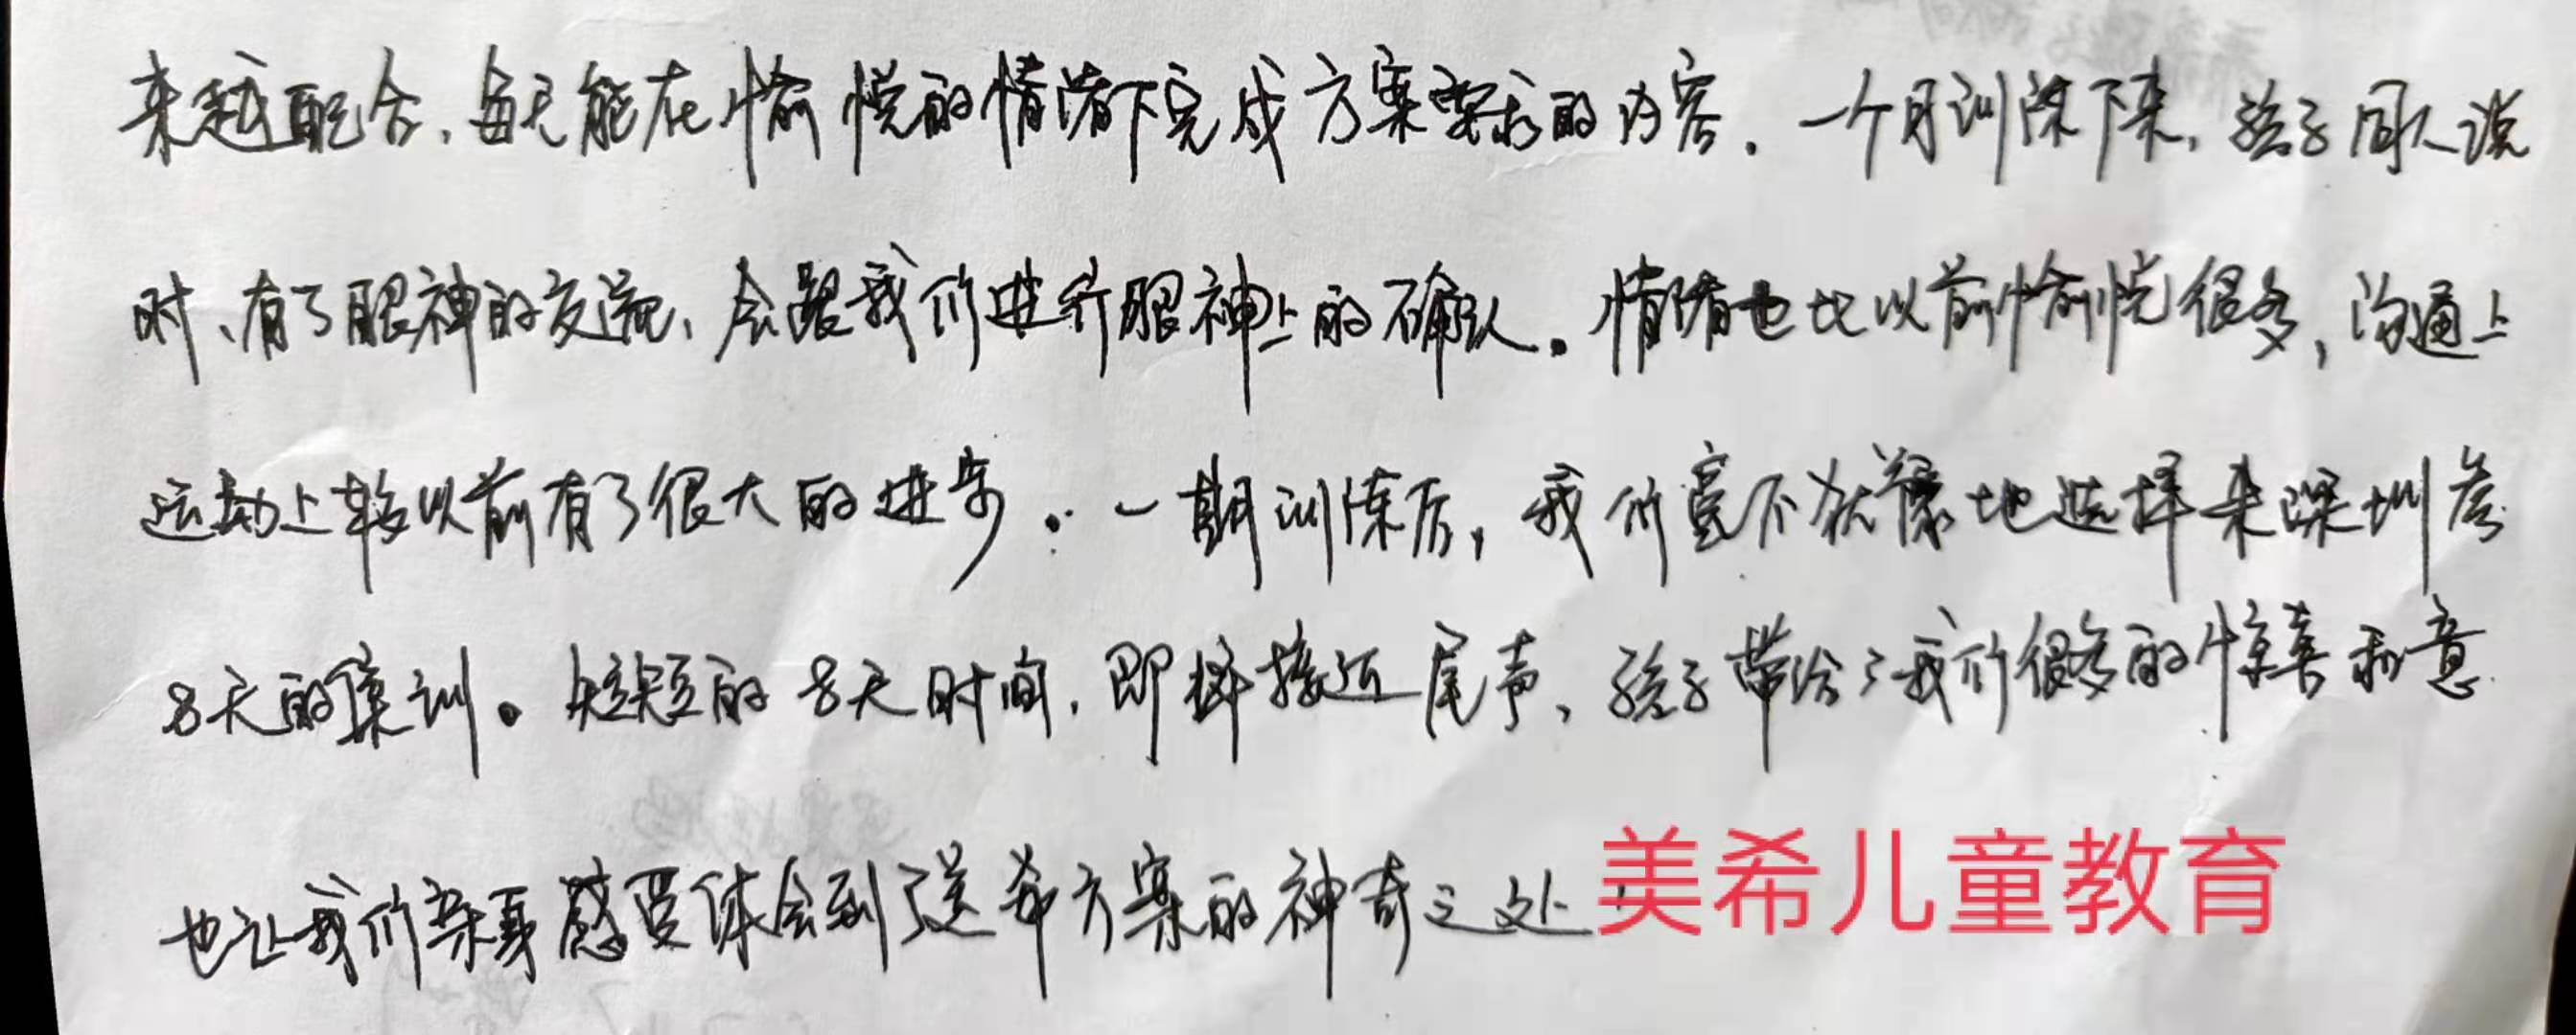 来越配合,每天能在愉悦的情绪下完成方案要求的内容。一个月训练下来,孩子同人说
时、有了眼神的交流,会跟我们进行眼神上的确认。情绪也比以前愉悦很多,沟通上
运动上较以前有了很大的进步。一期训练后,我们毫不犹豫地选择来深圳参
8天的集训。短短的8天时间,即将接近尾声,孩子带给了我们很多的惊喜和意
也让我们亲身感受体会到了美希方案的神奇之处
美希儿童教育